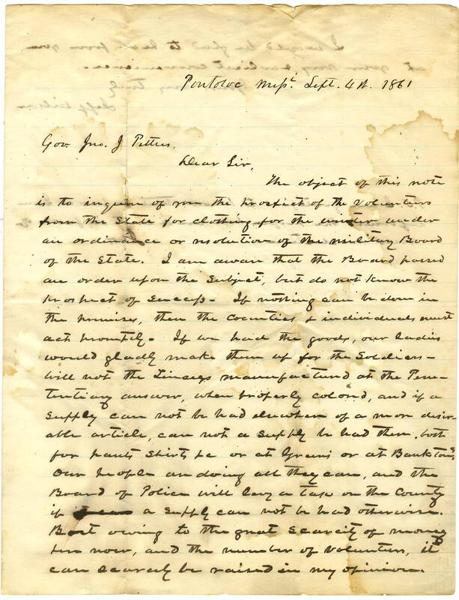 Pontotoc Missi. Sept. 4th. 1861
Gov. Jno. J Pettus,
Dear Sir,
The object of this note
is to inquire of you the prospect of the Volunteers
from the State for clothing for the winter under
an ordinance or resolution of the Military Board
of the State. I am aware that the Board passed
an order upon the Subject, but do not know the
prospect of Success. If nothing can be done in
the premises, then the Counties & individuals must
act promptly. If we had the goods, our ladies
would gladly make them up for the Soldiers—
Will not the Linseys manufactured at the Peni-
tentiary answer, when properly colored, and if a
Supply can not be had elsewhere of a more desir-
able article, can not a supply be had there, both
for pants shirts &c or at Greens or at Bankston?
Our people are doing all they can, and the
Board of Police will levy a tax on the County
if a supply can not be had otherwise.
But owing to the great scarcity of money
here now, and the number of Volunteers, it
can scarcely be raised in my opinion.